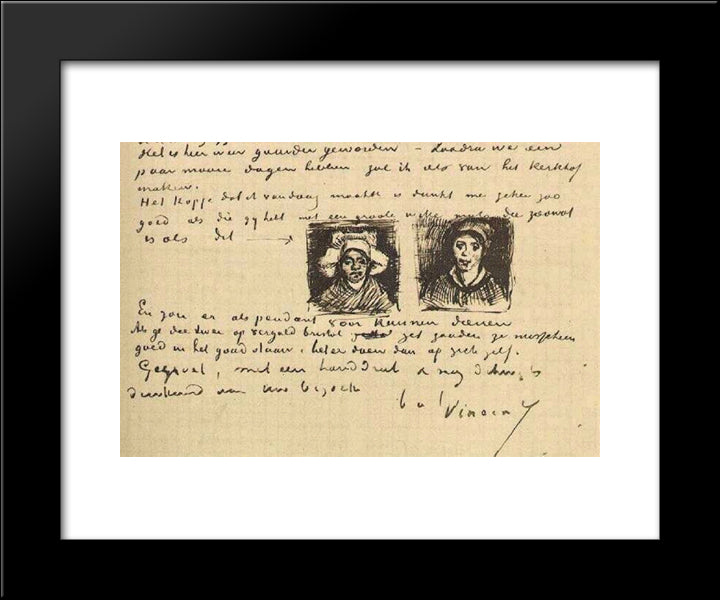 Het is hier weer gouden geworden – Zoodra we een
paar mooie dagen hebben zal ik iets van het Kerkhof
maken.
Het Kopje dat ik vandaag maakte is dunkt me zeker zoo
goed als die gy hebt met een groote witte muts die zoowat
is als dit
En zou er als pendant voor Kunnen dienen
Als ge die twee op verguld bristol zet zouden ze misschien
goed in het goud staan, beter doen dan op zich zelf.
Gegroet, met een handdruk & nog
dankend voor Uw bezoek
Vincent